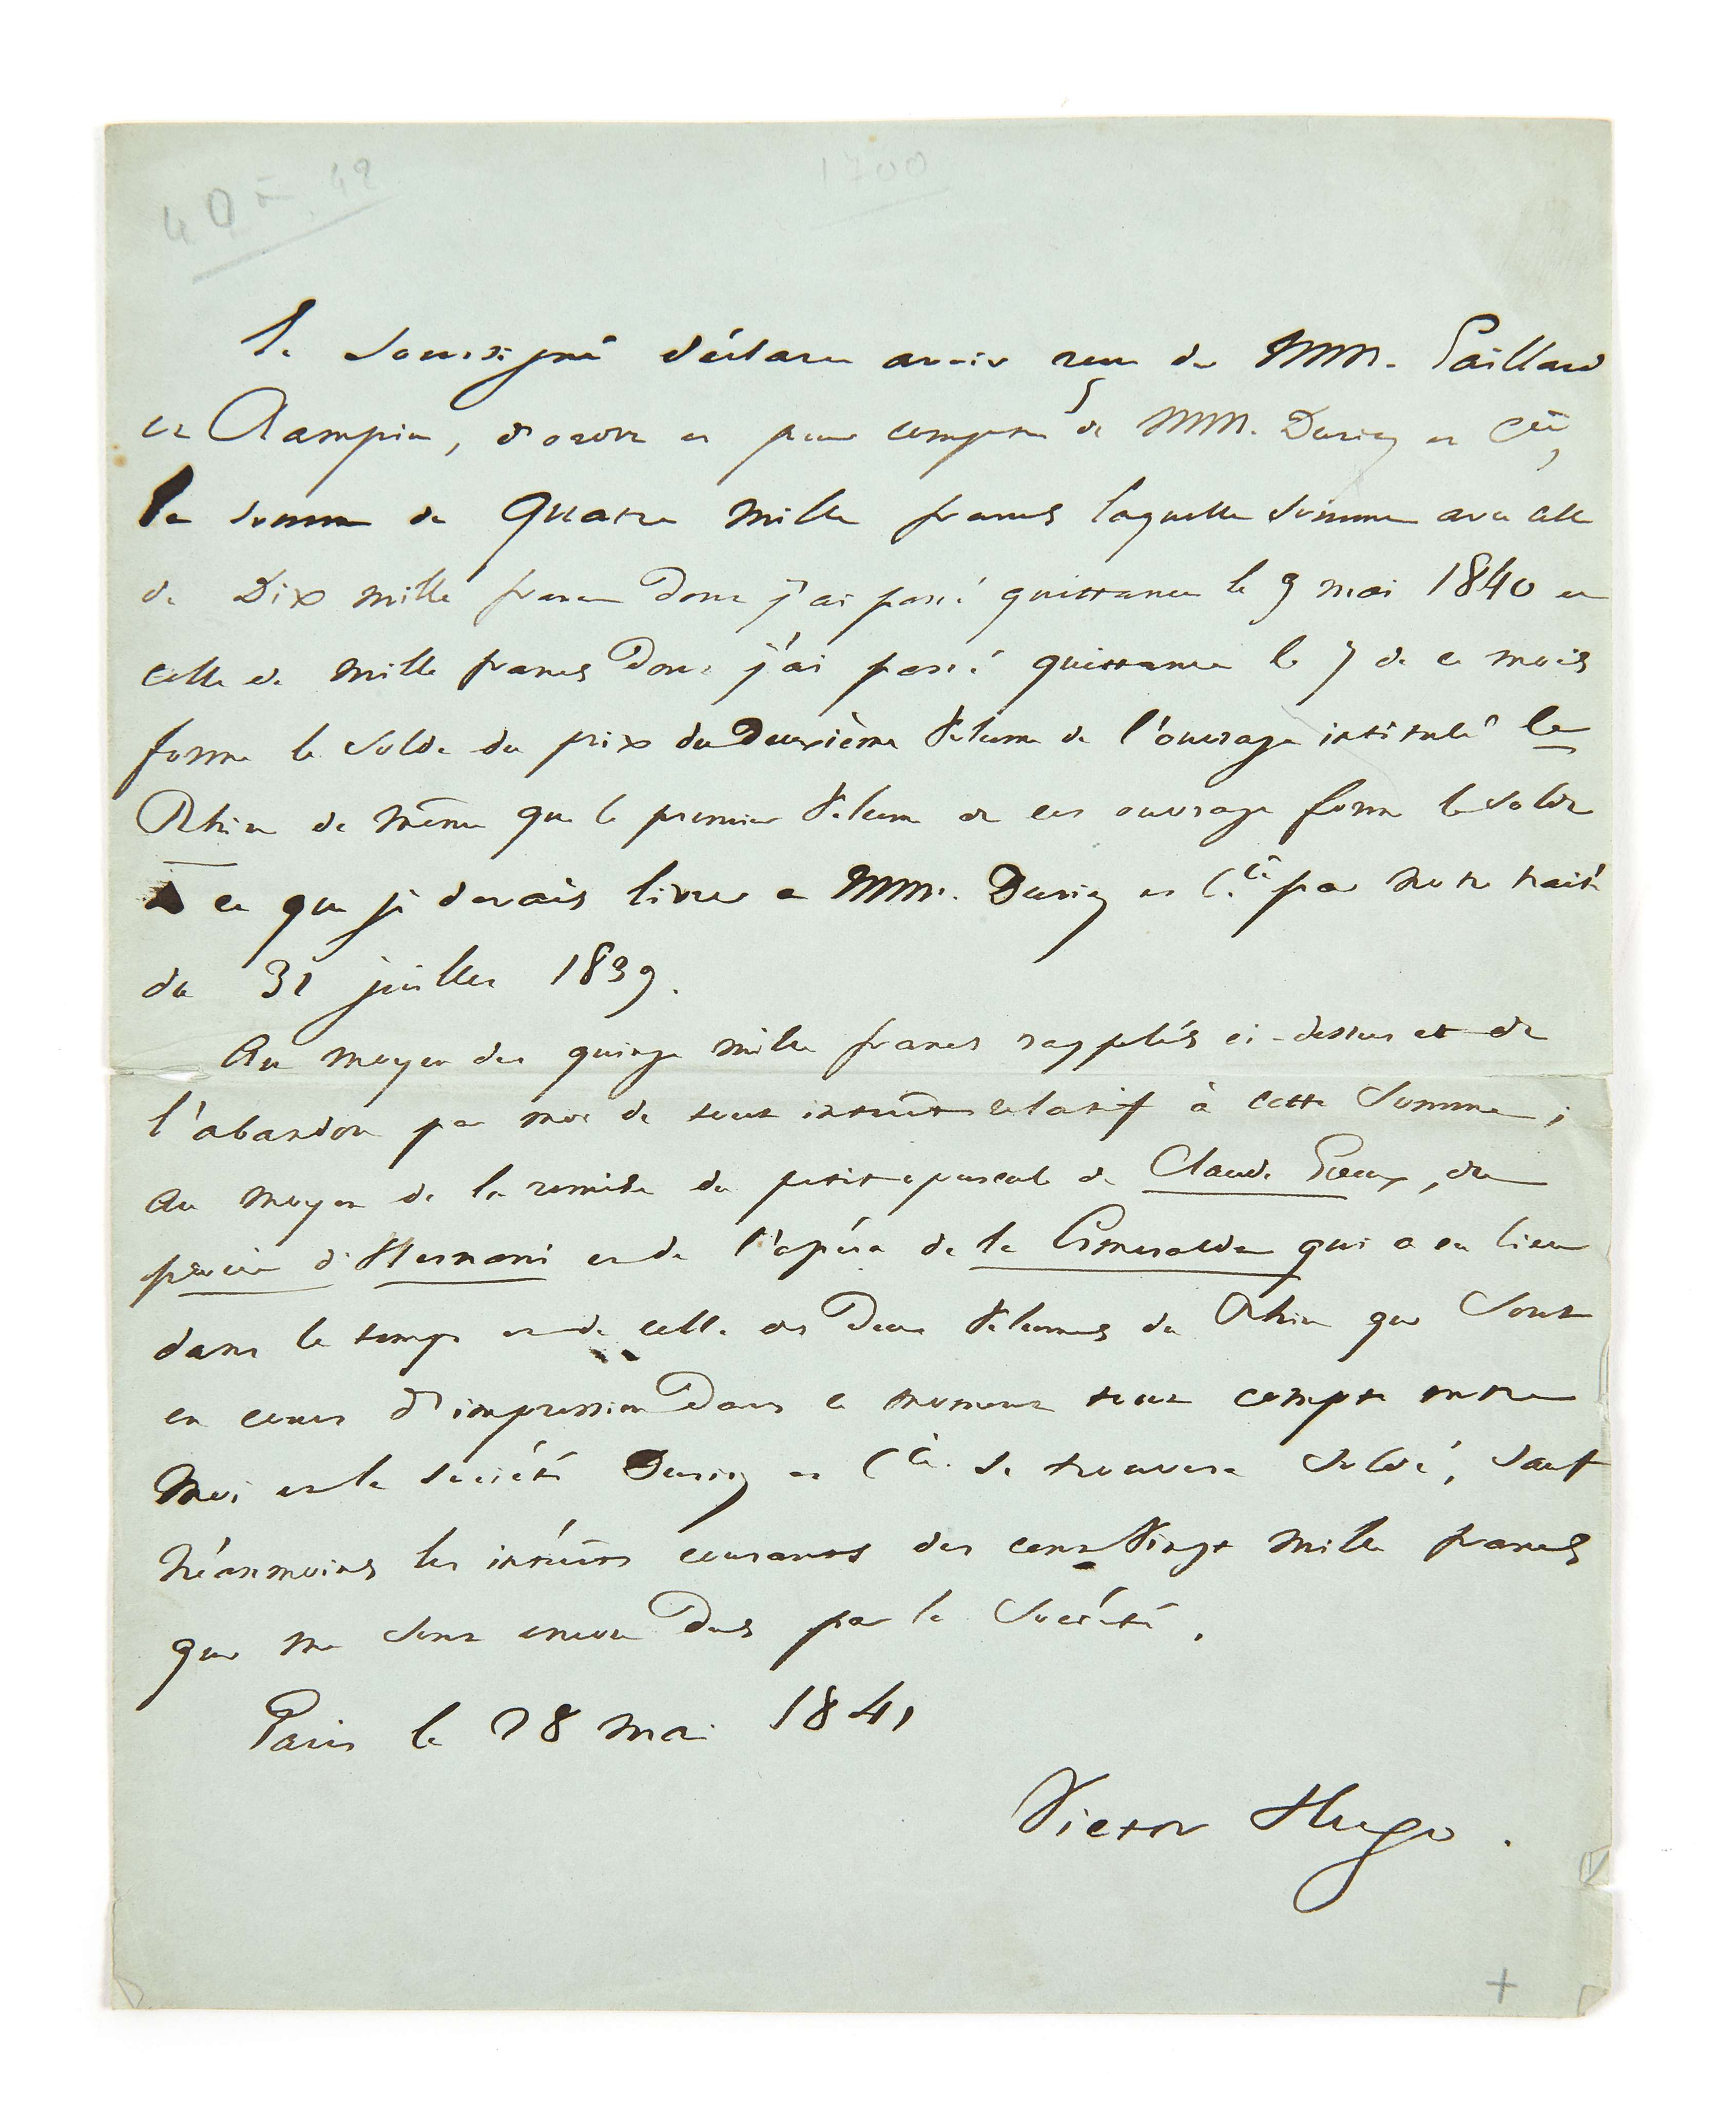 40 F 42
1700
Le soussigné déclare avoir reçu de MM. Gaillard
et Rampin, d'ordre et pour compte de MM. Duriez et Cie,
la somme de Quatre mille francs laquelle somme avec celle
de Dix mille francs dont j'ai passé quittance le 9 mai 1840 et
celle de mille francs dont j'ai passé quittance le 7 de ce mois
forme le solde du prix du Deuxième Volume de l'ouvrage intitulé le
Rhin de même que le premier Volume de cet ouvrage forme le solde
de ce que je devais livrer à MM. Duriez et Cie par notre traité
du 31 juillet 1839.
Au moyen des quinze mille francs rappelés ci-dessus et de
l'abandon par moi de tout intérêt relatif à cette somme ;
au moyen de la remise du petit opuscule de Claude Gueux, du
procès d'Hernani et de l'opéra de la Esmeralda qui a eu lieu
dans le temps et de celle des Deux Volumes du Rhin qui sont
en cours d'impression dans ce moment tout compte entre
moi et la société Duriez et Cie. se trouvera soldé, sauf
néanmoins les intérêts courants des cent Vingt mille francs
qui me sont encore dus par la Société.
Paris le 28 mai 1841
Victor Hugo.